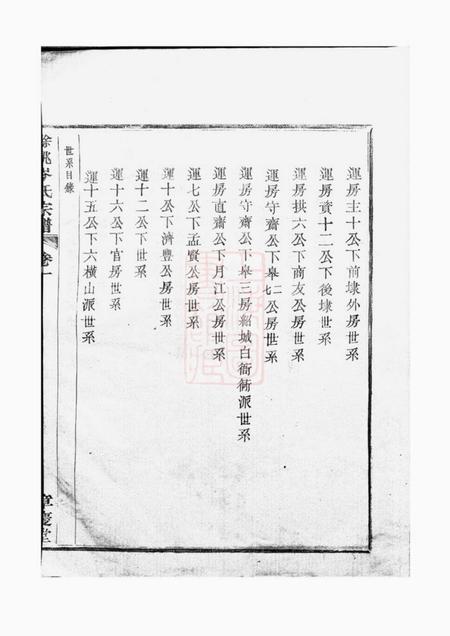 運房主十公下前埭外房世系
運房賓十二公下後埭世系
運房拱六公下商友公房世系
運房守齋公下舉二七公房世系
運房守齋公下舉三房紹城白衙衖派世系
運房直齋公下月江公房世系
運七公下孟賢公房世系
運十公下濟豐公房世系
運十二公下世系
運十六公下官房世系
運十五公下六橫山派世系
世系目錄
餘姚岑氏宗譜
卷一
章慶堂